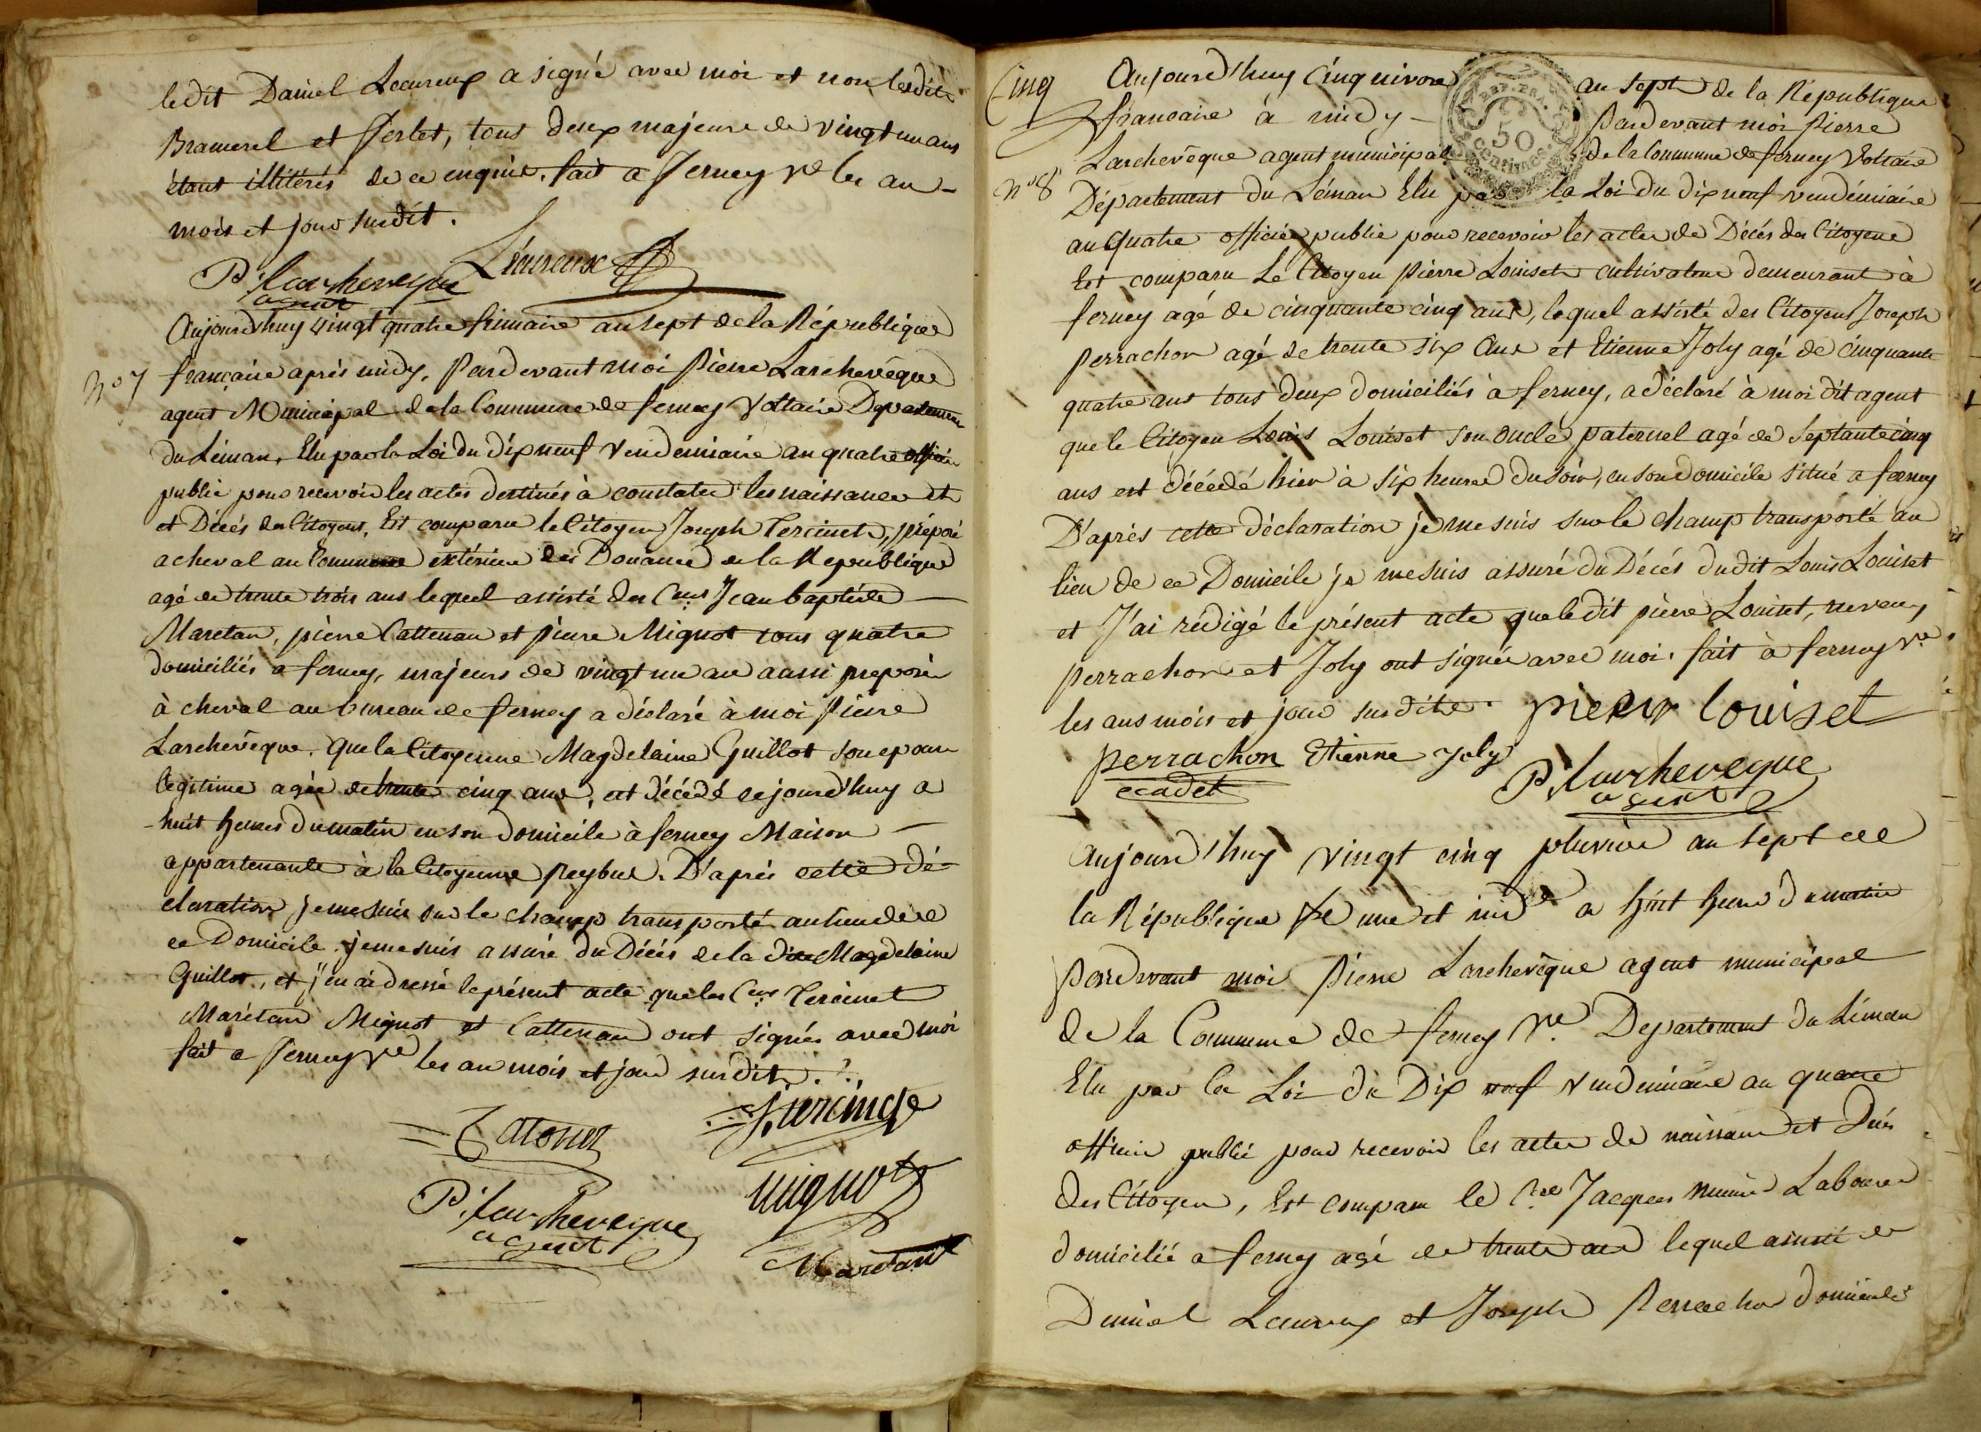 ledit Daniel Lecureux a signé avec moi et non lesdits
Bramerel et Ferlet, tous deux majeurs de vingt un ans
étant illitérés de ce enquis. fait a Ferney Vre les an -
mois et jour susdit.
Lécureux
P. Larcheveque
agent
Nº 7
Aujourd'huy vingt quatre frimaire an sept de la République
française après midy. Pardevant moi Pierre Larchevêque
agent Municipal de la Commune de ferney Voltaire Departement
du Léman, Elu par la Loi du dix neuf Vendemiaire an quatre officier
public pour recevoir les actes destinés à constater les naissances et
et Décés des Citoyens, Est comparu le Citoyen Joseph Tercinet, préposé
a cheval au Commerce extérieur des Douanes de la Republique
agé de trente trois ans lequel assisté des Cens Jean baptiste -
Maretan, pierre Cattenan et pierre Mignot tous quatre
domiciliés a ferney, majeurs de vingt un ans aussi preposés
à cheval au bureau de ferney a déclaré à moi Pierre
Larchevêque. que la Citoyenne Magdelaine Guillot son epouse
legitime agée de trente cinq ans, est décédé cejourd'huy a
huit heures du matin en son domicile à ferney Maison -
appartenante à la Citoyenne . D'aprés cette dé-
claration je me suis sur le champ transporté au lieu de
ce Domicile je me suis assuré du Décés de la dite Magdelaine
Guillot, et j'en ai dressé le présent acte que les Cens Tercinet
Marétan Mignot et Cattenan ont signés avec moi
fait a ferney Vre les an mois et jour susdit.
J. tercinet
mignot
P. Larcheveque
agent
Maretant
Cinq
Nº 8
Aujourd'huy Cinq nivose an sept de la République
REP. FRA.
50
centimes
francaise à midy - Pardevant moi Pierre
Larchevêque agent municipal de la Commune de ferney Voltaire
Département du Léman Elu par la Loi du dix neuf vendémiaire
an quatre officier public pour recevoir les actes de Décés des Citoyens
Est comparu Le Citoyen Pierre Louiset cultivateur demeurant à
ferney agé de cinquante cinq ans, lequel assisté des Citoyens Joseph
perrachon agé de trente six ans et Etienne Joly agé de cinquante
quatre ans tous deux domiciliés à ferney, a déclaré à moi dit agent
que le Citoyen Louis Louiset son oncle paternel agé de septante cinq
ans est décédé hier à six heures du soir, en son domicile situé a ferney
D'aprés cette déclaration je me suis sur le champ transporté au
lieu de ce Domicile je me suis assuré du Décés dudit Louis Louiset
et J'ai rédigé le présent acte que ledit pierre Louiset, neveu,
perrachon et Joly ont signés avec moi. fait à ferney Vre
les ans mois et jour susdits. pierr louiset
perrachon Etienne Joly
cadet
P. Larcheveque
agent
aujourd'huy vingt cinq pluviose an sept de
la République une et ind a huit heures du matin
Pardevant moi Pierre Larchevêque agent municipal
de la Commune de ferney Vre. Departement du Léman
Elu par la Loi du Dix neuf Vendemiaire an quatre
officier public pour recevoir les actes de naissance et Décés
des Citoyens, Est comparu le Cen Jacques Labourer
domicilié a ferney agé de trente ans lequel assisté de
Daniel Lecureux et Joseph Perrachon domiciliés